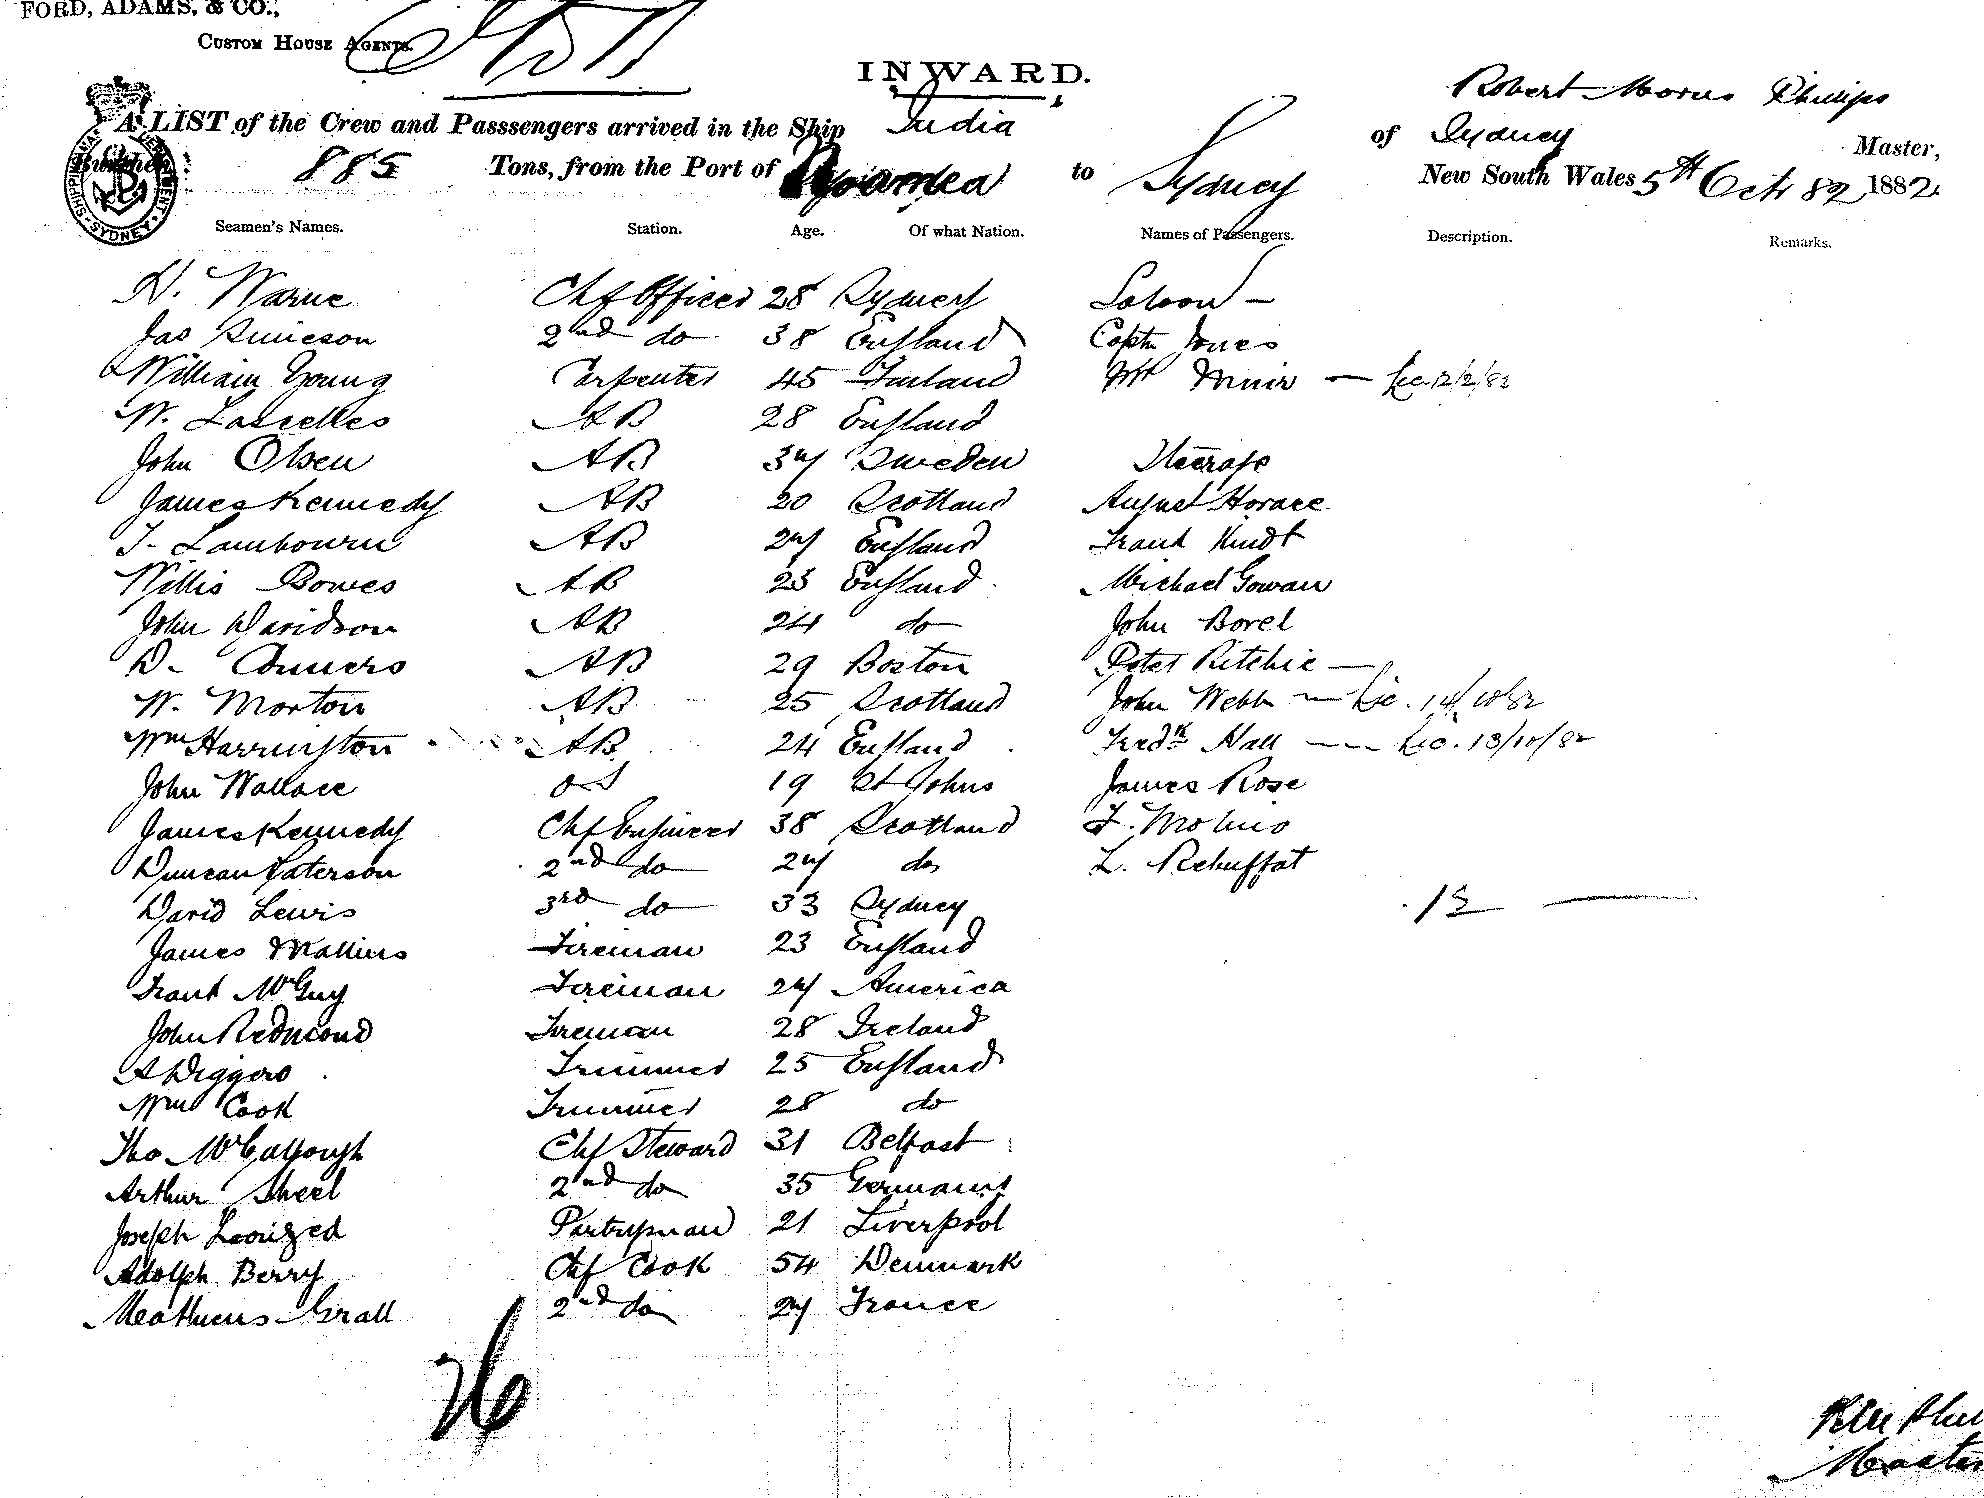 FORD, ADAMS, & CO.,
CUSTOM HOUSE AGENTS.
INWARD.
Robert Morris Phillips
A LIST of the Crew and Passsengers arrived in the Ship India of Sydney Master,
Burthen 885 Tons, from the Port of Noumea to Sydney New South Wales 5th Oct 82 1882
SHIPPING MASTER'S DEPARTMENT SYDNEY
Seamen's Names. Station. Age. Of what Nation. Names of Passengers. Description. Remarks.
H. Warne Chf Officer 28 Sydney Saloon —
Jas Simieson 2nd do 38 England Captn Jones
William Young Carpenter 45 Finland Mr Muir —
W. Lascelles AB 28 England
John Olsen AB 37 Sweden Steerage
James Kennedy AB 20 Scotland August Horace
T. Lambourn AB 27 England Frank Kindt
Willis Bowes AB 23 England Michael Gowan
John Davidson AB 24 do John Borel
D. Conners AB 29 Boston Peter Ritchie —
W. Morton AB 25 Scotland John Webb — Lic. 14/10/82
Wm Harrington AB 24 England Fredk Hall — Lic. 13/10/82
John Wallace OS 19 St Johns James Rose
James Kennedy Chf Engineer 38 Scotland F. Molino
Duncan Paterson 2nd do 27 do L. Rebuffat
David Lewis 3rd do 33 Sydney
James Mallins Fireman 23 England
Frank McGuy Fireman 27 America
John Redmond Fireman 28 Ireland
A Diggers Trimmer 25 England
Wm Cook Trimmer 28 do
Tho McCullough Chf Steward 31 Belfast
Arthur Sheel 2nd do 35 Germany
Joseph Pantryman 21 Liverpool
Adolph Berry Chf Cook 54 Denmark
Matheus Grall 2nd do 27 France
26
Master